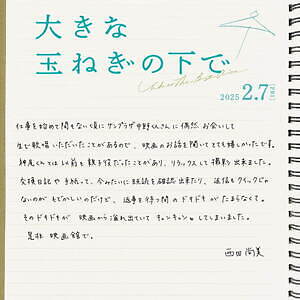 大きな
玉ねぎの下で
Under the Big Onion
2025 2.7 [FRI]
仕事を始めて間もない頃にサンプラザ中野くんさんに偶然お会いして
生で歌唱いただいたことがあるので、映画のお話を聞いてとても嬉しかったです。
神尾くんとは以前も親子役だったことがあり、リラックスして撮影出来ました。
交換日記や手紙って、今みたいに既読を確認出来たり、返信もクイックじゃ
ないのがもどかしいのだけど、返事を待つ間のドキドキがたまらなくて。
そのドキドキが映画から溢れ出ていてキュンキュンしてしまいました。
是非映画館で。
西田尚美